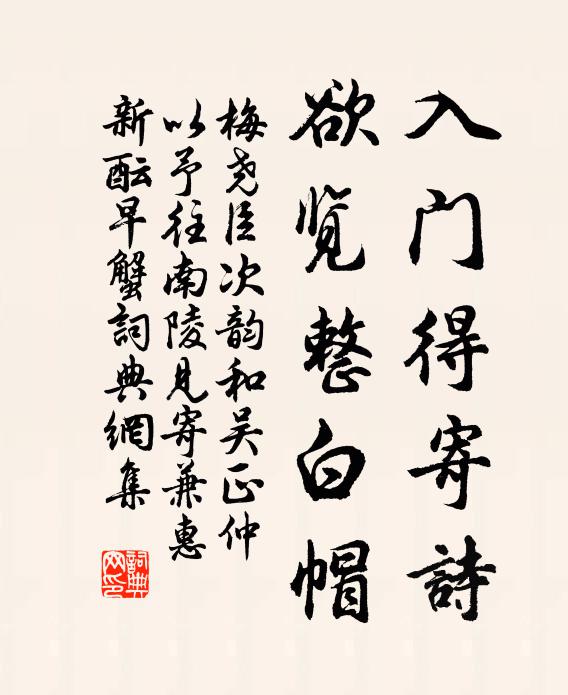 入门得寄詩
欲覧整白帽
梅尧臣次韵和吴正仲
以予往南陵见寄兼惠
新酝早蟹詞典網集
詞典
网印